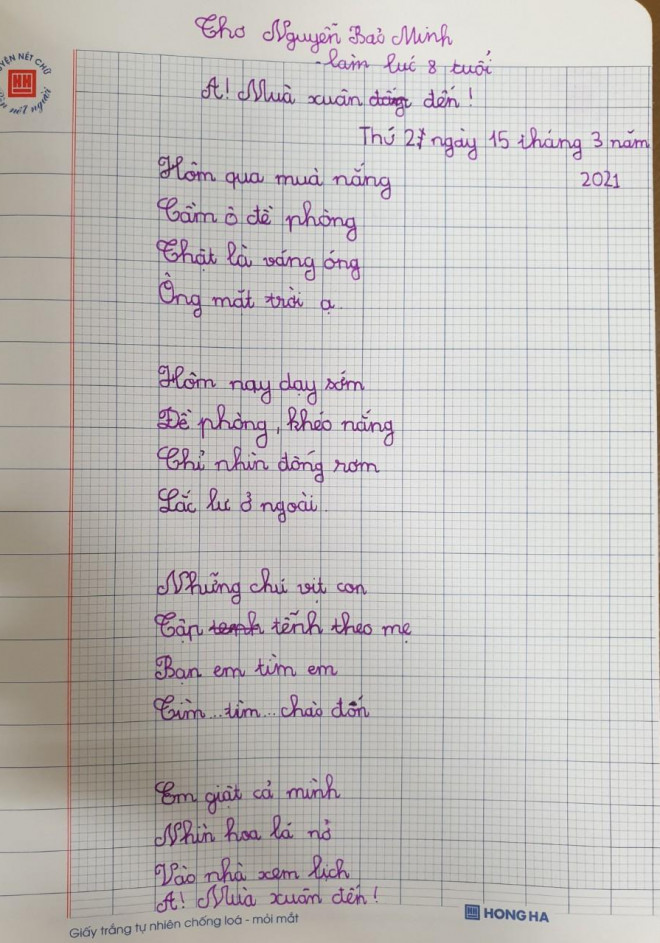 Thơ Nguyễn Bảo Minh
- làm lúc 8 tuổi
A! Mùa xuân đến!
Thứ 2, ngày 15 tháng 3 năm
2021
Hôm qua mùa nắng
Cầm ô đề phòng
Thật là váng óng
Ông mặt trời ạ.
Hôm nay dạy sớm
Đề phòng, khéo nắng
Chỉ nhìn đống rơm
Lắc lư ở ngoài.
Những chú vịt con
Tập tễnh theo mẹ
Bạn em tìm em
Tìm...tìm... chào đón
Em giật cả mình
Nhìn hoa lá nở
Vào nhà xem lịch
A! Mùa xuân đến!
Giấy trắng tự nhiên chống loá - mỏi mắt
HH HONG HA
HH